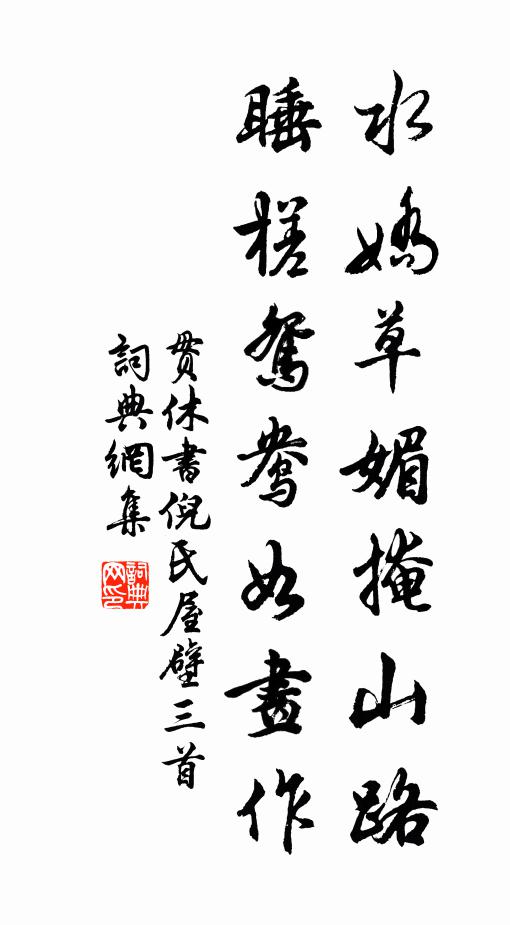 水嬌草媚掩山路
睡槎鴛鴦如畫作
貫休書倪氏屋壁三首
詞典網集
詞典网印